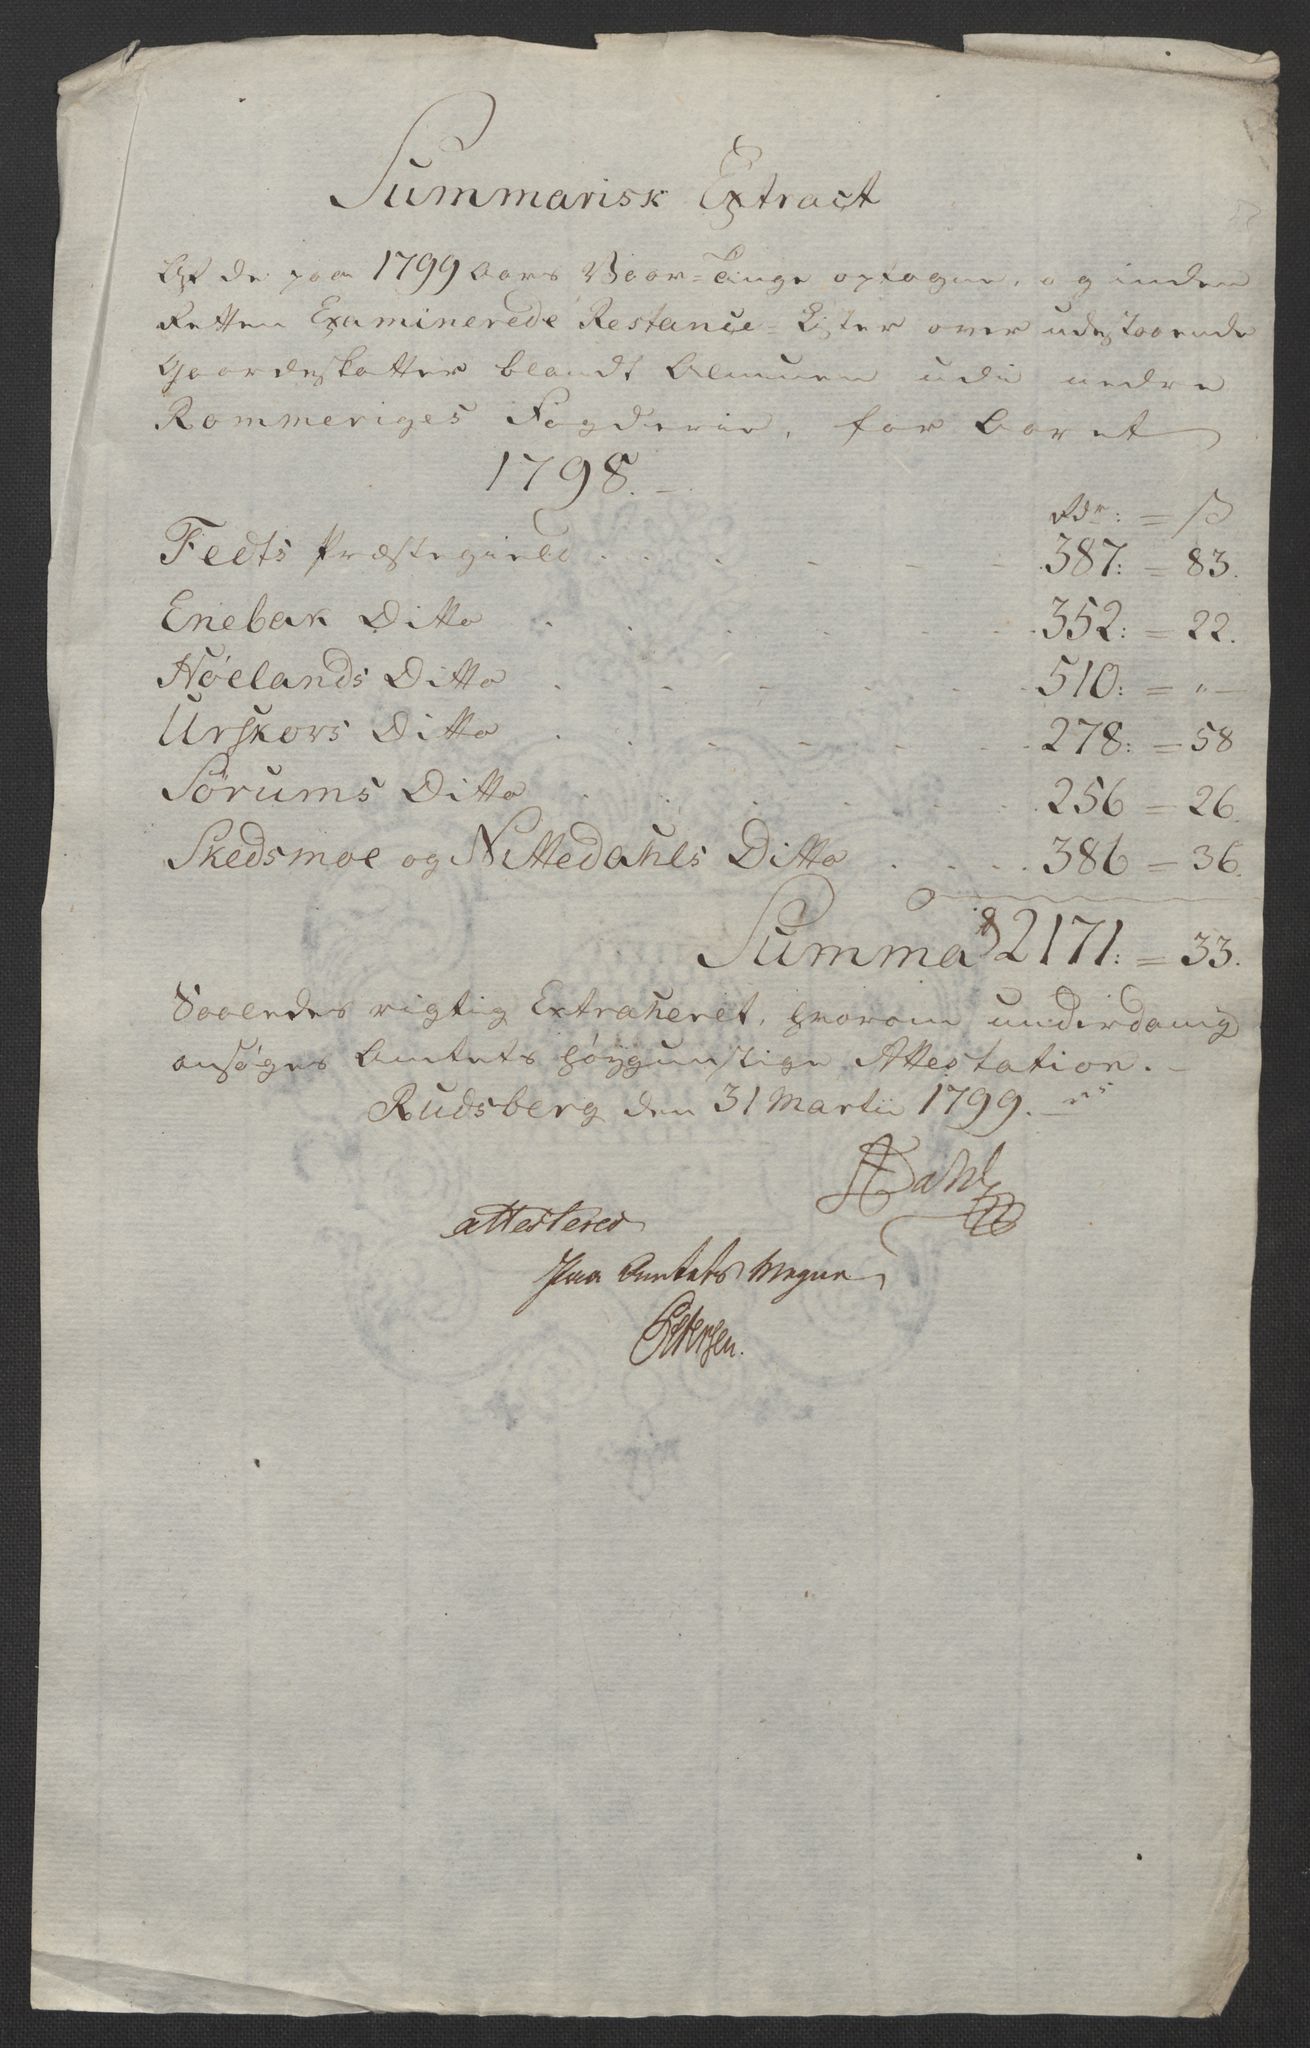 Summarisk Extract
Af de paa 1799 Aars Vaar-Tinge optagne, og inden
Retten Examinerede Restance-Lister over udestaaende
Gaardeskatter blandt Almuen udi nedre
Rommeriges Fogderie, for Aaret
1798.
Rdr: = ß
Feets Præstegield . . . . . 387: = 83.
Enebak Ditto . . . . . 352: = 22.
Høelands Ditto . . . . . 510: = "
Urskovs Ditto . . . . . 278: = 58
Sørums Ditto . . . . . 256 = 26.
Skedsmoe og Nittedahls Ditto . . . . 386 = 36.
Summa 2171: = 33.
Saaledes rigtig Extraheret, hvorom underdanig
ansøges Amtets høygunstige Attestation.
Rudsberg den 31 Martii 1799.
Dahl
attesteres
Paa Amtets Vegne
Petersen.